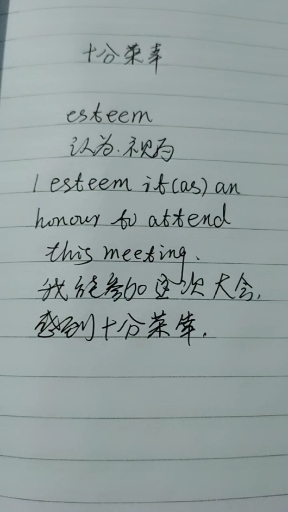 十分荣幸
esteem
认为.视为
I esteem it(as) an
honour to attend
this meeting.
我能参加这次大会,
感到十分荣幸.